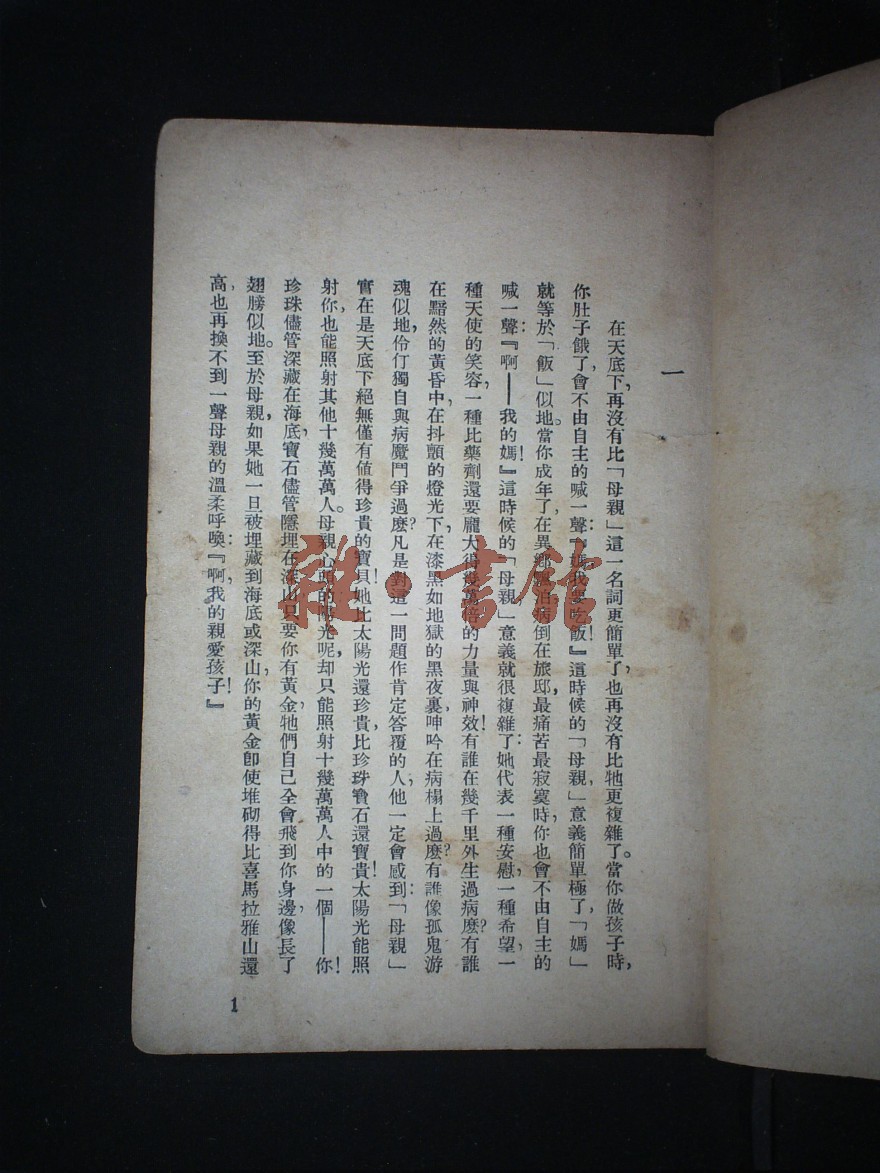 一
在天底下,再沒有比「母親」這一名詞更簡單了,也再沒有比牠更複雜了。當你做孩子時,
你肚子餓了,會不由自主的喊一聲:『媽,我要吃飯!』這時候的「母親」,意義簡單極了,「媽」
就等於「飯」似地。當你成年了,在異鄉飄泊,病倒在旅邸,最痛苦最寂寞時,你也會不由自主的
喊一聲:『啊——我的媽!』這時候的「母親」,意義就很複雜了:她代表一種安慰,一種希望,一
種天使的笑容,一種比藥劑還要龐大得幾萬倍的力量與神效!有誰在幾千里外生過病麽?有誰
在黯然的黃昏中,在抖顫的燈光下,在漆黑如地獄的黑夜裏,呻吟在病榻上過麽?有誰像孤鬼游
魂似地,伶仃獨自與病魔鬥爭過麽?凡是對這一問題作肯定答覆的人,他一定會感到:「母親」
實在是天底下絕無僅有值得珍貴的寶貝!她比太陽光還珍貴,比珍珠寶石還寶貴!太陽光能照
射你,也能照射其他十幾萬萬人。母親心頭的陽光呢,却只能照射十幾萬萬人中的一個——你!
珍珠儘管深藏在海底,寶石儘管隱埋在深山,只要你有黃金,牠們自己全會飛到你身邊,像長了
翅膀似地。至於母親,如果她一旦被埋藏到海底或深山,你的黃金即使堆砌得比喜馬拉雅山還
高,也再換不到一聲母親的溫柔呼喚:『啊,我的親愛孩子!』
1
雜·書館